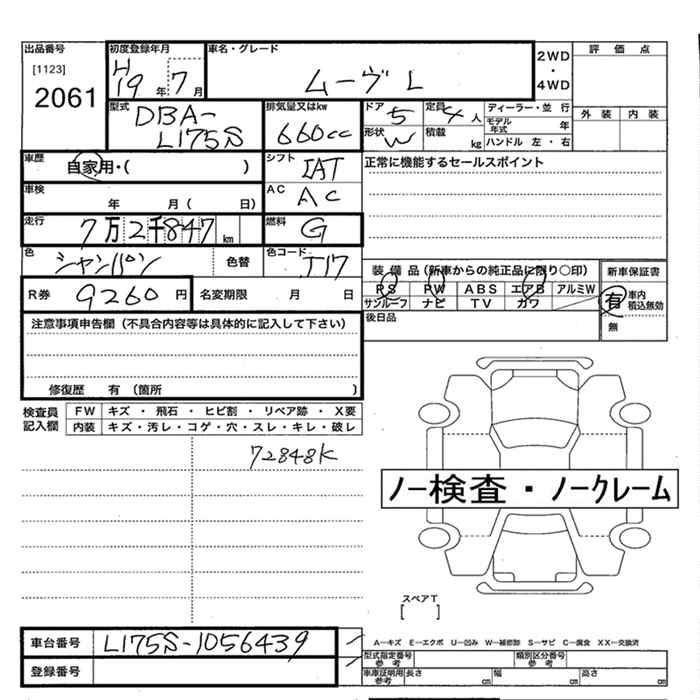 出品番号
[1123]
2061
初度登録年月
H19年 7月
車名・グレード
ムーヴ L
2WD
・
4WD
評価点
外装 内装
型式
DBA-
L175S
排気量又はkw
660cc
ドア 5
形状 W
定員 4 人
積載 kg
ディーラー・並行
モデル年式 年
ハンドル 左・右
車歴
自家用・( )
シフト
IAT
正常に機能するセールスポイント
車検
年 月( 日)
AC
AC
走行
7万2千847km
燃料
G
色
シャンパン
色替
色コード
T17
装備品(新車からの純正品に限り○印)
PS PW ABS エアB アルミW
サンルーフ ナビ TV カワ
新車保証書
有 車内積込無効
無
R券 9260円
名変期限 月 日
後日品
注意事項申告欄(不具合内容等は具体的に記入して下さい)
修復歴 有 (箇所 )
検査員記入欄
FW キズ・飛石・ヒビ割・リペア跡・X要
内装 キズ・汚レ・コゲ・穴・スレ・キレ・破レ
72848K
ノー検査・ノークレーム
スペアT
[ ]
車台番号 L175S-1056439
登録番号
A-キズ E-エクボ U-凹み W-補修跡 S-サビ C-腐食 XX-交換済
型式指定番号 参考
類別区分番号 参考
車庫証明用 参考 長さ cm 幅 cm 高さ cm